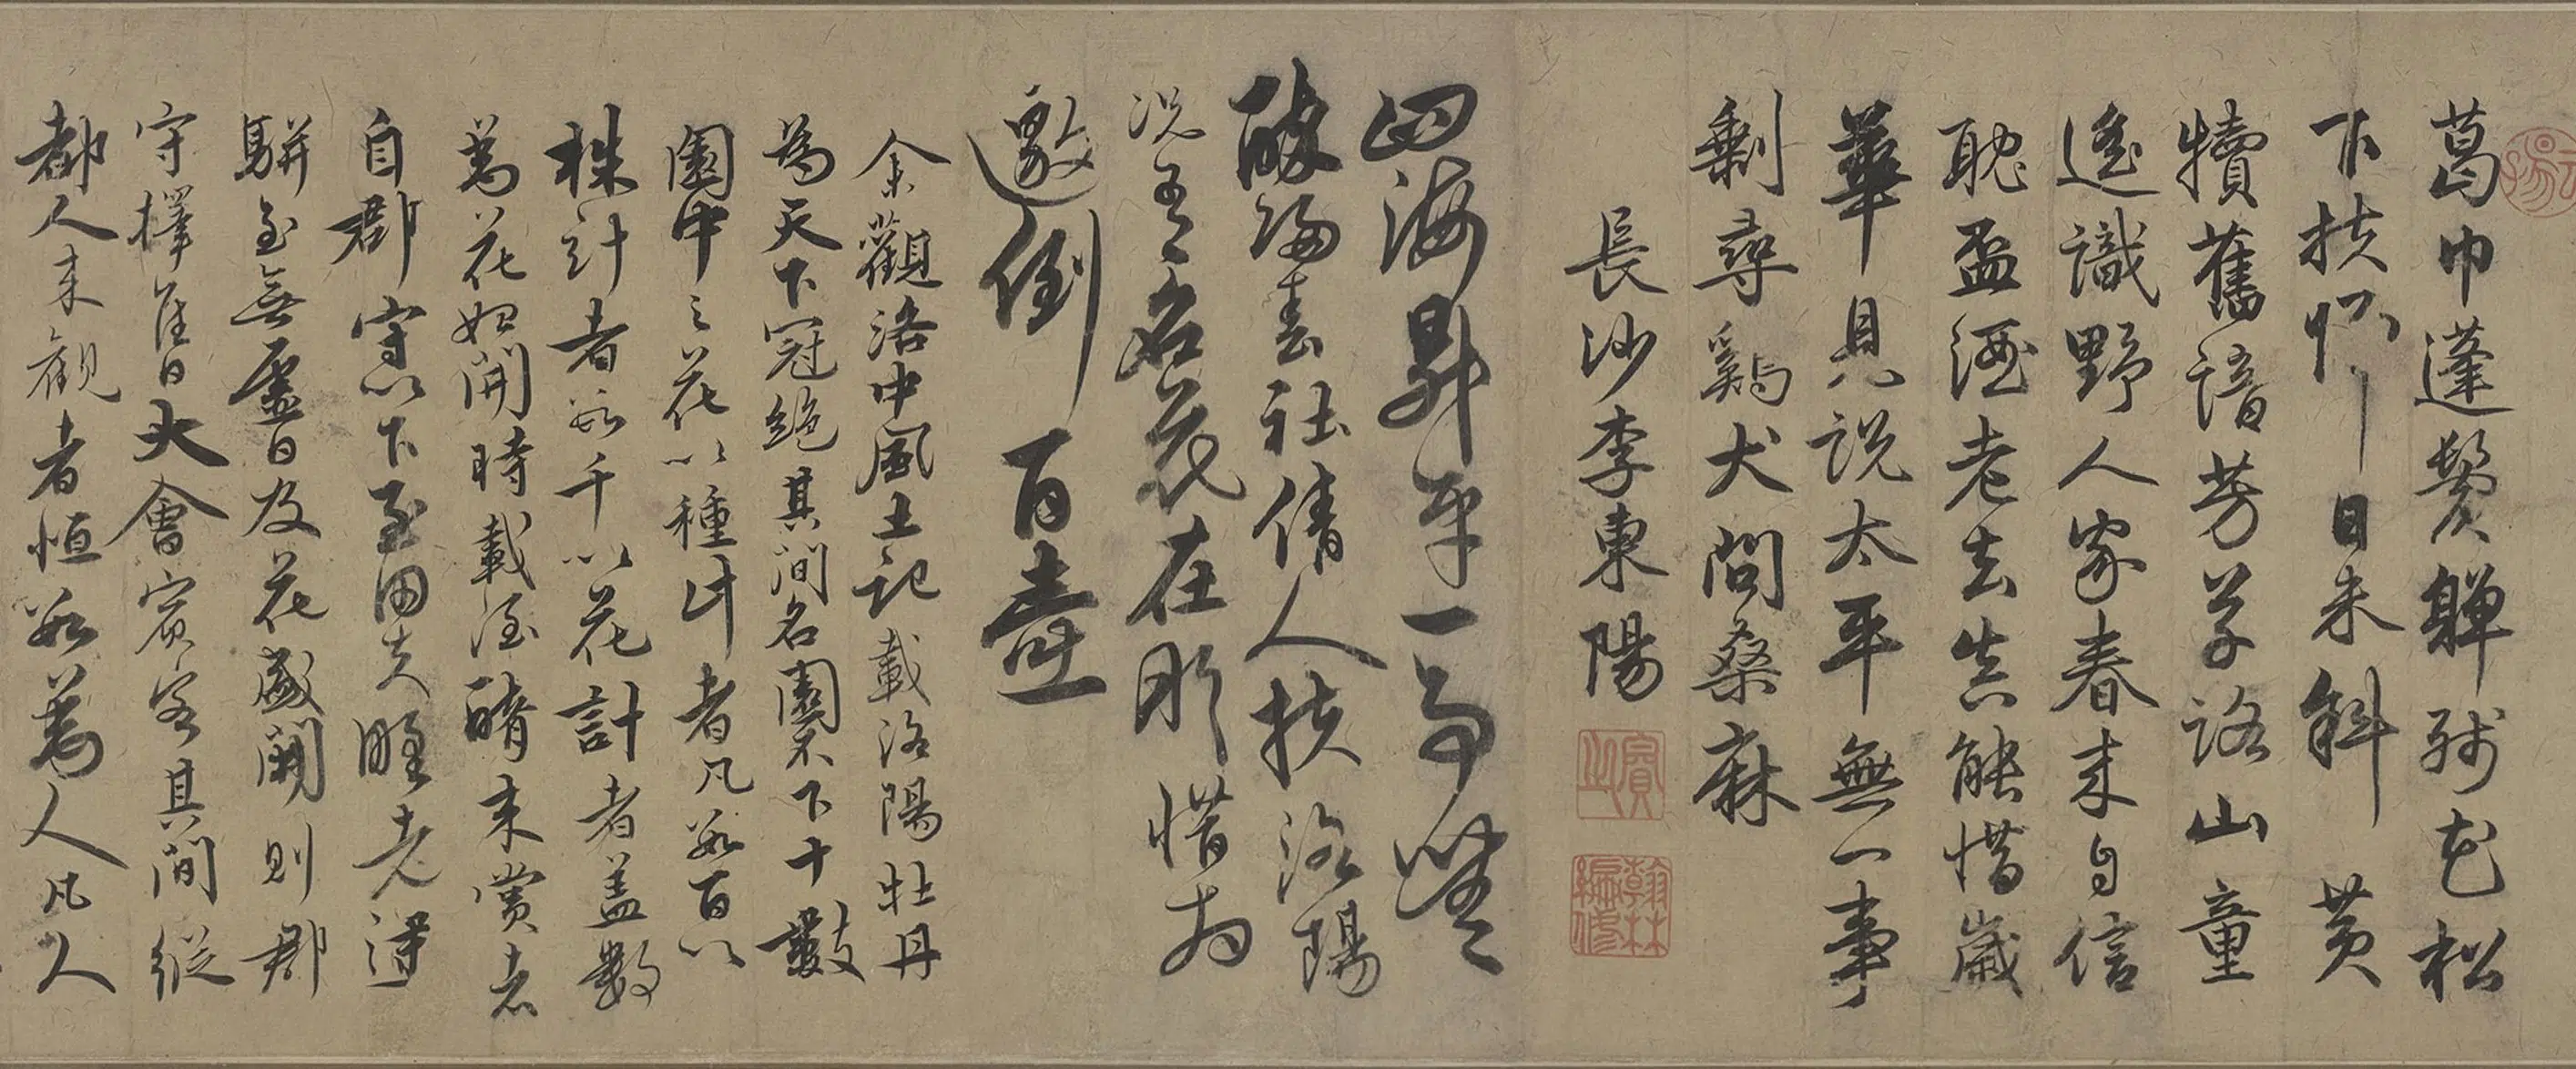 葛巾蓬鬢軃殘花松
下扶節日未斜黄
犢舊諳芳草路山童
遙識野人家春來自信
耽盃酒老去真能惜歲
華具說太平無一事
剩尋雞犬問桑麻
長沙李東陽
賓之
翰林編修
四海昇平一事無
醉歸春社倩人扶洛陽
況是名花在那惜為
邀倒百壺
余觀洛中風土記載洛陽牡丹
為天下冠絕其間名園不下十數
園中之花以種計者凡數百以
株計者數千以花計者蓋數
萬花始開時載酒餚來賞者
自郡守以下至田夫野老得
駢至無虛日及花盛開則郡
守擇佳日大會賓客其間縱
都人來觀者恒數萬人凡人